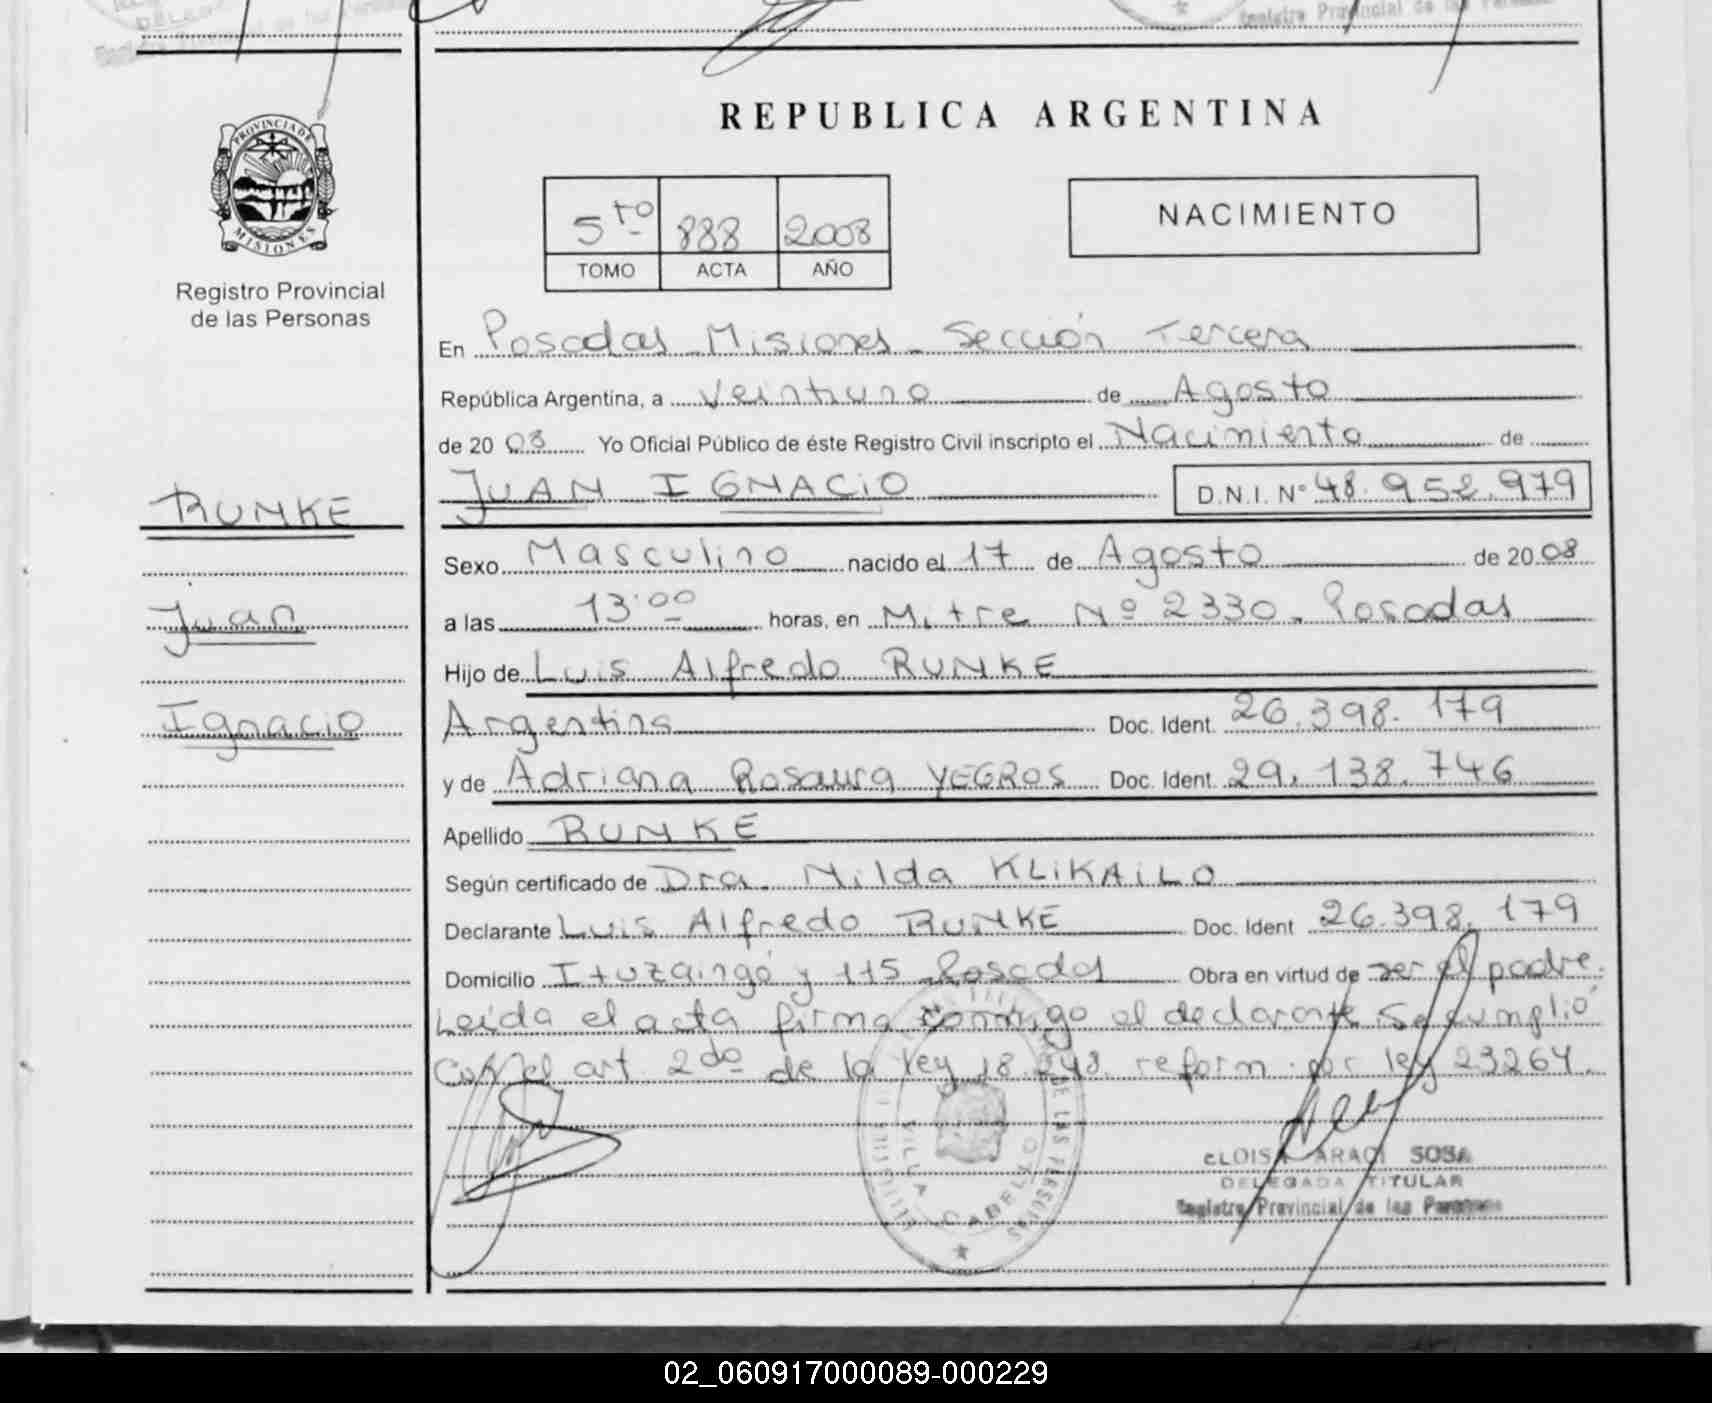 REPUBLICA ARGENTINA
PROVINCIA DE
MISIONES
Registro Provincial
de las Personas
5to 888 2008
TOMO ACTA AÑO
NACIMIENTO
En Posadas Misiones Sección Tercera
República Argentina, a Veintiuno de Agosto
de 20 08 Yo Oficial Público de éste Registro Civil inscripto el Nacimiento de
JUAN IGNACIO D.N.I. Nº 48.952.979
RUNKE
Juan
Ignacio
Sexo Masculino nacido el 17 de Agosto de 20 08
a las 13:00 horas, en Mitre Nº 2330. Posadas
Hijo de Luis Alfredo RUNKE
Argentina Doc. Ident. 26.398.179
y de Adriana Rosaura YEGROS Doc. Ident. 29.138.746
Apellido RUNKE
Según certificado de Dra. Nilda KLIKAILO
Declarante Luis Alfredo RUNKE Doc. Ident 26.398.179
Domicilio Ituzaingó y 115 Posadas Obra en virtud de ser el padre.
Leída el acta firma conmigo el declarante Se cumplió
Con el art 2do de la ley 18.248 reform. por ley 23264.
DE LAS PERSONAS
VILLA CABELLO
ELOISA ARACI SOSA
DELEGADA TITULAR
Registro Provincial de las Personas
02_060917000089-000229